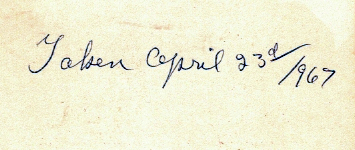 Taken April 23d/1967